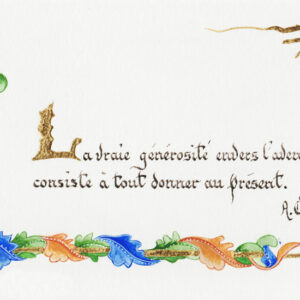 La vraie générosité enders l'aden
consiste à tout donner au présent.
A.